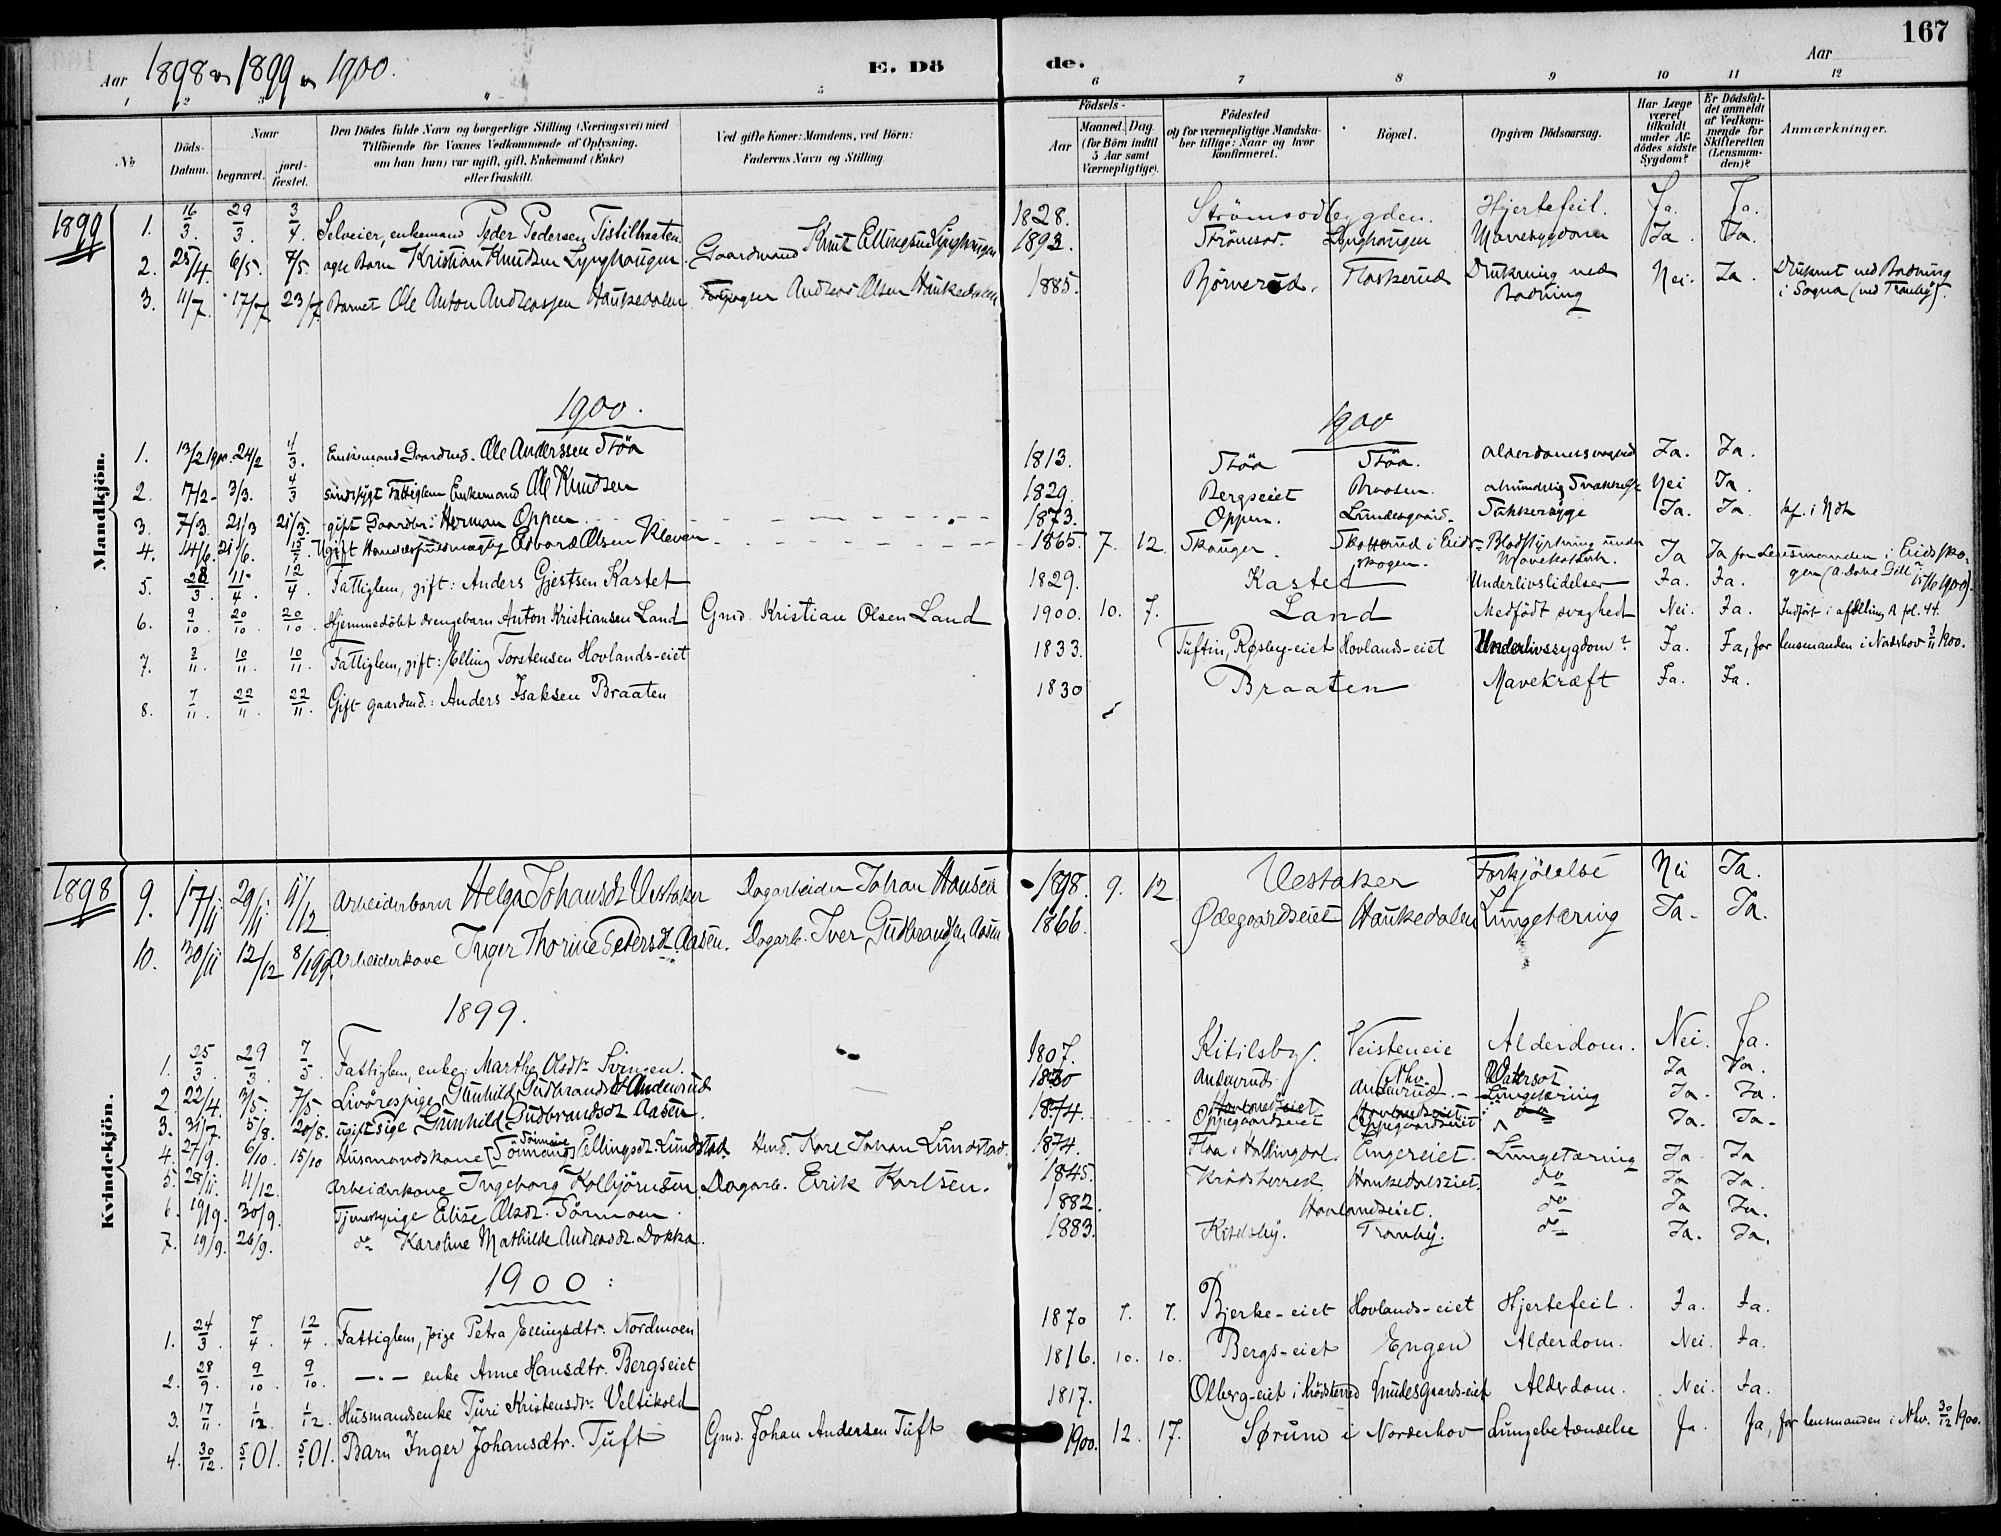 167
Aar 1898 og 1899 og 1900.
E. Döde.
Aar
1 2 3 4 5 6 7 8 9 10 11 12
No
Döds-Datum.
Naar
begravet.
jord-fæstet.
Den Dödes fulde Navn og borgerlige Stilling (Næringsvei) med
Tilföiende for Voxnes Vedkommende af Oplysning,
om han (hun) var ugift, gift, Enkemand (Enke)
eller fraskilt.
Ved gifte Koner: Mandens, ved Börn:
Faderens Navn og Stilling.
Födsels-
Aar
Maaned. Dag
(for Börn indtil
5 Aar samt
Værnepligtige).
Födested
og for værnepligtige Mandska-
ber tillige: Naar og hvor
konfirmeret.
Bopæl.
Opgiven Dödsaarsag.
Har Læge
været
tilkaldt
under Af-
dödes sidste
Sygdom?
Er Dödsfal-
det anmeldt
af Vedkom-
mende for
Skifteretten
(Lensman-
den)?
Anmærkninger.
Mandkjön.
1899
1. 16/3. 29/3. 3/4. Selveier, enkemand Peder Pedersen Tistilbraaten. 1828. Strømsodbygden. Hjertefeil. Ja. Ja.
2. 25/4. 6/5. 7/5. Barn Kristian Knudsen Lynghaugen. Gaardmand Knut Ellingsen Lynghaugen 1893. Strömsod. Lynghaugen Mavesygdom Ja. Ja.
3. 11/7. 17/7. 23/7. Barnet Ole Anton Andreassen Haukedalen Andreas Olsen Haukedalen 1885. Björnerud. Flaskerud Drukning ved Badning Nei. Ja. Druknet ved Badning
i Sogna (ved Tranby).
1900. 1900
1. 13/2 1900. 24/2 4/3. Enkemand Gaardmd. Ole Anderssen Stöa 1813. Stöa Stöa. Alderdomssvaghed Ja. Ja.
2. 17/2. 3/3. 4/3 sindssygt Fattiglem Enkemand Ole Knudsen 1829. Bergseiet Braaten. almindelig Svækkelse Nei Ja
3. 7/3. 21/3 21/3. gift Gaardbr. Herman Oppen 1873. Oppen. Lundesgaard. Sukkersyge Ja. Ja kf. i Ndh
4. 14/6. 21/6. 15/7. Ugift Handelsfuldmægtig Edvard Olsen Kleven 1865. 7. 12. Skauger. Skotterud i Eids-
skogen. Blodstyrtning under Mavekatarrh Ja Ja for Lensmanden i Eidsko-
gen
5. 28/3. 11/4. 12/4. Fattiglem, gift: Anders Gjestsen Kastet 1829. Kastet Underlivslidelser Ja. Ja.
6. 9/10. 20/10. 20/10. Hjemmedöbt drengebarn Anton Kristiansen Land Gmd. Kristian Olsen Land 1900. 10. 7. Land Medfödt svaghed Nei. Ja. Indfört i afdeling A fol. 44.
7. 2/11. 10/11. 10/11. Fattiglem, gift: Elling Torstensen Hovlands-eiet 1833. Tuftin, Røsby-eiet Hovlands-eiet Underlivssygdom? Ja. Ja, for lensmanden i Norderhov 3/11 1900.
8. 7/11. 22/11. 22/11. Gift gaardmd.: Anders Isaksen Braaten 1830 Braaten Mavekræft Ja. Ja.
Kvindekjön.
1898
9. 17/11 29/11 11/12 Arbeiderbarn Helga Johansdt. Vestaker Dagarbeider Johan Hansen 1898. 9. 12 Vestaker Forkjölelse Nei Ja.
10. 30/11 12/12 8/1 99. Arbeiderkone Inger Thorine Pedersdt. Aasen. Dagarb. Iver Gudbrandsen Aasen 1866. Ødegaardseiet Haukedalen Lungetæring Ja. Ja.
1899.
1. 25/3. 29/3. 7/5. Fattiglem, enke, Marthe Olsdtr. Svingen. 1807. Kitilsby. Veisteneie Alderdom. Nei. Ja.
2. 22/4. 3/5. 7/5. Livörespige Gunhild Gudbrandsdt. Anderud 1830 Anderud. Anderud (Nhv.) Vatersot Ja Ja.
3. 31/7. 5/8. 20/8. ugift Pige Gunhild Gudbrandsdt. Aasen. 1874. Hovlandseiet Oppegaardseiet Hovlandseiet Oppegaardseiet Lungetæring Ja. Ja.
4. 27/9. 6/10. 15/10 Husmandskone Ellingsdt. Lundstad. Hmd. Karl Johan Lundstad. 1874. Flaa i Hallingdal. Engereiet. Lungetæring Ja. Ja
5. 28/11. 11/12. Arbeiderkone Ingeborg Kolbjörnsen Dagarb. Erik Karlsen. 1845. Krödsherred Haukedalseiet. do Ja Ja.
6. 19/9. 30/9. Tjenestepige Elise Olsdt. Törmoen. 1882. Hovlandseiet. do Ja Ja.
7. 19/9. 26/9. do Karoline Mathilde Andreasdt. Dokka. 1883. Kitelsby. Tranby. do Ja. Ja.
1900:
1. 24/3. 7/4. 12/4. Fattiglem, pige Petra Ellingsdtr. Nordmoen 1870 7. 7. Bjerke-eiet Hovlands-eiet Hjertefeil. Ja. Ja.
2. 28/9. 9/10. 9/10. —"— enke Anne Hansdtr. Bergseiet 1816. 10. 10. Bergs-eiet Engen Alderdom. Nei. Ja.
3. 17/11. 1/12. 1/12. Husmandsenke Turi Kristensdtr. Veltikold 1817. Olberg-eiet i Krödsherred Gnudesgaards-eiet Alderdom. Nei. Ja.
4. 30/12. 5/1 01. 5/1 01. Barn Inger Johansdtr. Tuft Gmd. Johan Andersen Tuft 1900. 12. 17. Sørum i Norderhov Lungebetændelse Ja. Ja, for lensmanden i Nhv. 30/12 1900.